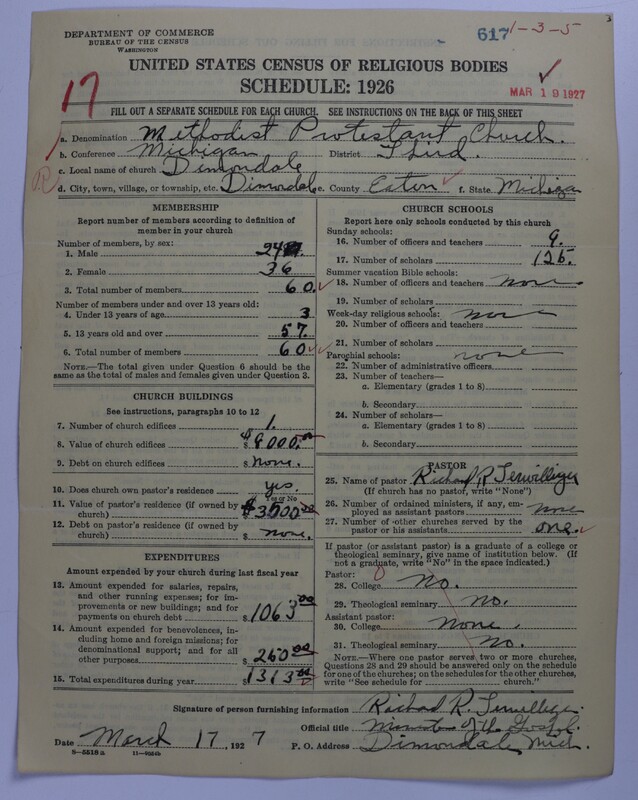 DEPARTMENT OF COMMERCE
BUREAU OF THE CENSUS
WASHINGTON
617 1-3-5
UNITED STATES CENSUS OF RELIGIOUS BODIES
SCHEDULE: 1926
MAR 19 1927
17
FILL OUT A SEPARATE SCHEDULE FOR EACH CHURCH. SEE INSTRUCTIONS ON THE BACK OF THIS SHEET
a. Denomination Methodist Protestant Church.
b. Conference Michigan District Third.
c. Local name of church Dimondale
d. City, town, village, or township, etc. Dimondale e. County Eaton f. State Michigan
MEMBERSHIP
Report number of members according to definition of member in your church
Number of members, by sex:
1. Male 24
2. Female 36
3. Total number of members 60.
Number of members under and over 13 years old:
4. Under 13 years of age 3
5. 13 years old and over 57.
6. Total number of members 60
NOTE.—The total given under Question 6 should be the same as the total of males and females given under Question 3.
CHURCH BUILDINGS
See instructions, paragraphs 10 to 12
7. Number of church edifices 1.
8. Value of church edifices $9000.00
9. Debt on church edifices $ None.
10. Does church own pastor's residence yes.
Yes or No
11. Value of pastor's residence (if owned by church) $3500.00
12. Debt on pastor's residence (if owned by church) $ none.
EXPENDITURES
Amount expended by your church during last fiscal year
13. Amount expended for salaries, repairs, and other running expenses; for improvements or new buildings; and for payments on church debt $1063.00
14. Amount expended for benevolences, including home and foreign missions; for denominational support; and for all other purposes 250.00
15. Total expenditures during year $1313.00
CHURCH SCHOOLS
Report here only schools conducted by this church
Sunday schools:
16. Number of officers and teachers 9.
17. Number of scholars 125.
Summer vacation Bible schools:
18. Number of officers and teachers none
19. Number of scholars
Week-day religious schools: none
20. Number of officers and teachers
21. Number of scholars
Parochial schools: none
22. Number of administrative officers
23. Number of teachers—
a. Elementary (grades 1 to 8)
b. Secondary
24. Number of scholars—
a. Elementary (grades 1 to 8)
b. Secondary
PASTOR
25. Name of pastor Richard R Terwilliger
(If church has no pastor, write "None")
26. Number of ordained ministers, if any, employed as assistant pastors none
27. Number of other churches served by the pastor or his assistants one.
If pastor (or assistant pastor) is a graduate of a college or theological seminary, give name of institution below. (If not a graduate, write "No" in the space indicated.)
Pastor:
28. College No.
29. Theological seminary No.
Assistant pastor:
30. College None.
31. Theological seminary No.
NOTE.—Where one pastor serves two or more churches, Questions 28 and 29 should be answered only on the schedule for one of the churches; on the schedules for the other churches, write "See schedule for ........ church."
Signature of person furnishing information Richard R. Terwilliger
Official title Minister of the Gospel.
Date March 17, 1927 P. O. Address Dimondale Mich.